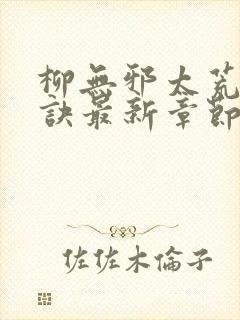 柳無邪太荒
訣最新章節
佐佐木倫子